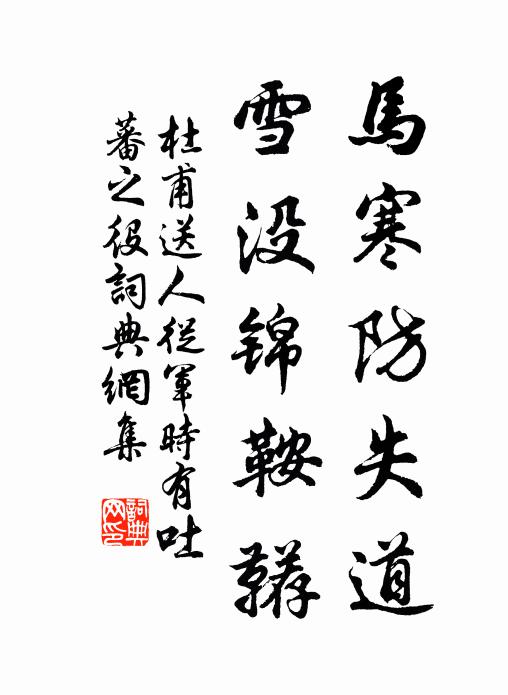 馬寒防失道
雪没锦鞍韉
杜甫送人從軍時有吐
蕃之役詞典網集
詞典
网印